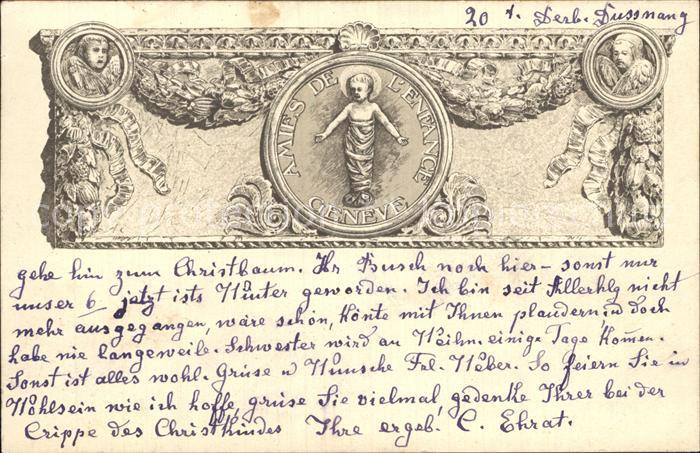 20 t. Derb. Dussnang
AMIES DE L'ENFANCE
GENEVE
gehe hin zum Christbaum. Hr Busch noch hier – sonst nur
unser 6 jetzt ists Winter geworden. Ich bin seit Allerhlg nicht
mehr ausgegangen, wäre schön, könte mit Ihnen plaudern, u doch
habe nie langeweile. Schwester wird an Weihn. einige Tage kommen.
Sonst ist alles wohl. Grüse u Wünsche Frl. Weber. So feiern Sie in
Wohlsein wie ich hoffe, grüse Sie vielmal, gedenke Ihrer bei der
Crippe des Christkindes Ihre ergeb. C. Ehrat.